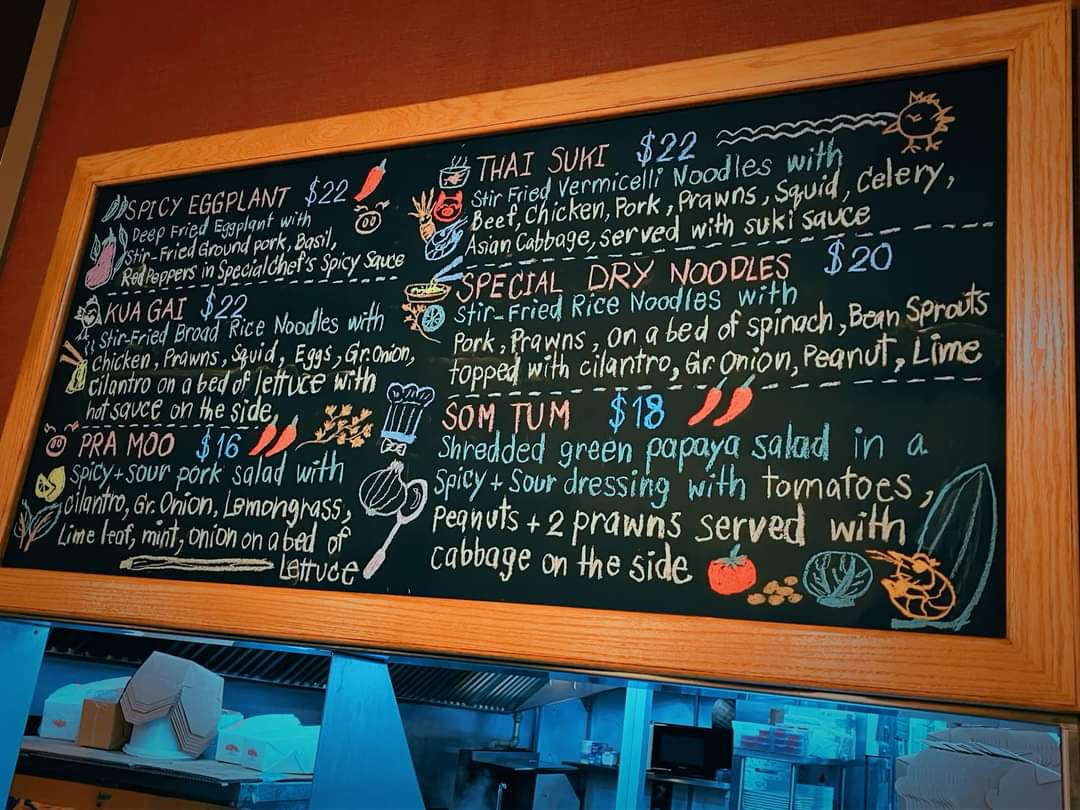 SPICY EGGPLANT $22
Deep Fried Eggplant with
Stir-Fried Ground pork, Basil,
Red Peppers in Special Chef's Spicy Sauce
KUA GAI $22
Stir-Fried Broad Rice Noodles with
Chicken, Prawns, Squid, Eggs, Gr. Onion,
Cilantro on a bed of lettuce with
hot sauce on the side
PRA MOO $16
Spicy + sour pork salad with
cilantro, Gr. Onion, Lemongrass,
Lime leaf, mint, onion on a bed of
Lettuce
THAI SUKI $22
Stir Fried Vermicelli Noodles with
Beef, Chicken, Pork, Prawns, Squid, Celery,
Asian Cabbage, served with suki sauce
SPECIAL DRY NOODLES $20
Stir-Fried Rice Noodles with
Pork, Prawns, on a bed of spinach, Bean Sprouts
topped with cilantro, Gr. Onion, Peanut, Lime
SOM TUM $18
Shredded green papaya salad in a
Spicy + Sour dressing with tomatoes,
Peanuts + 2 prawns served with
cabbage on the side